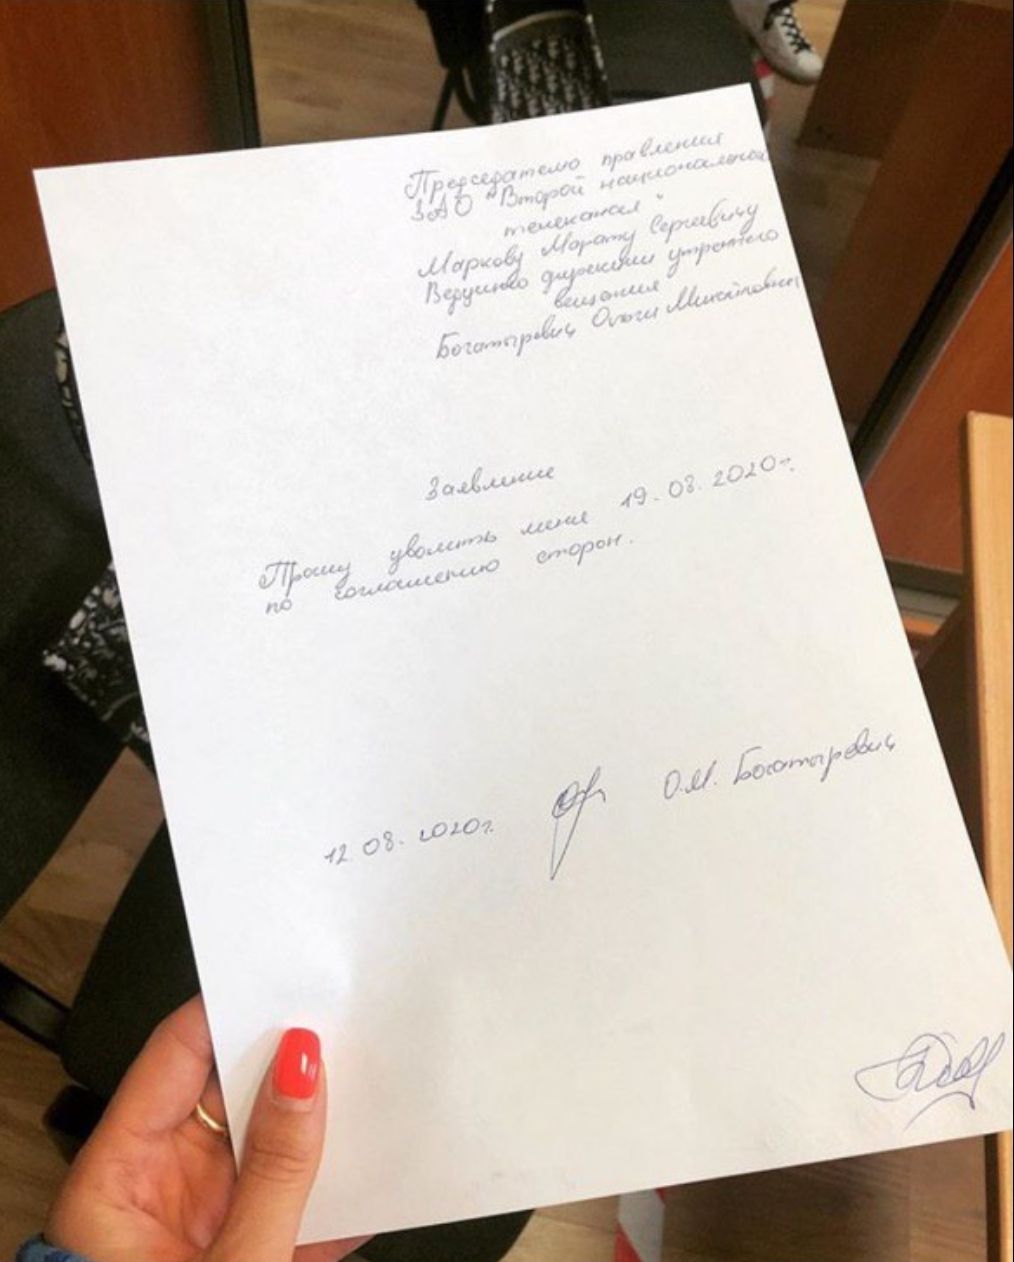 Председателю правления
ЗАО "Второй национальной
телеканал"
Маркову Марату Сергеевичу
Ведущего дирекции утреннего
вещания
Богатыревич Ольги Михайловны
Заявление
Прошу уволить меня 19.08.2020г.
по соглашению сторон.
12.08.2020г. О.М. Богатыревич